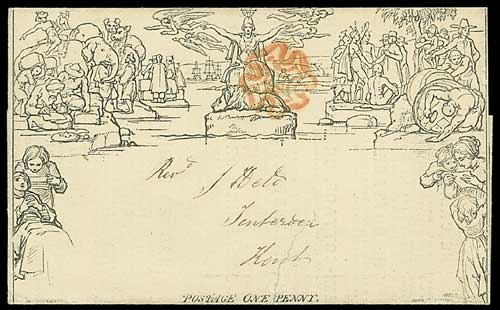 Revd J Held
Tenterden
Kent
POSTAGE ONE PENNY.